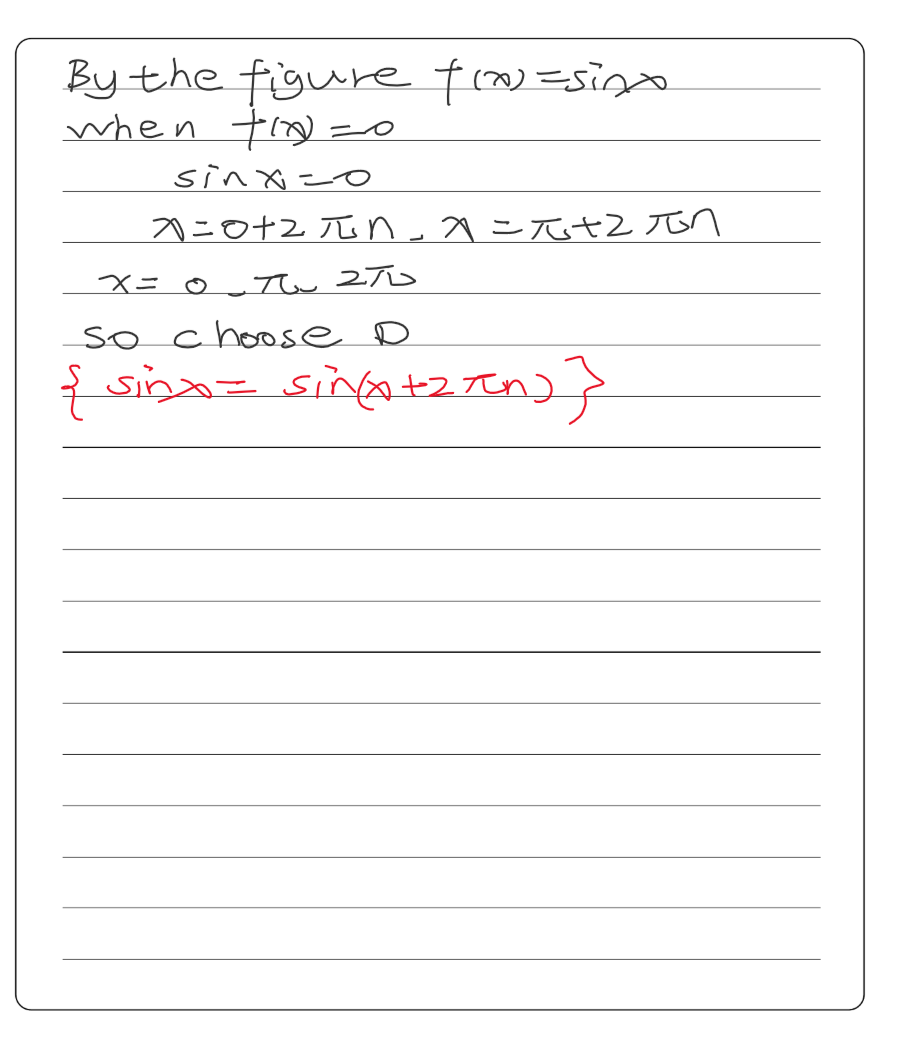 By the figure f(x)=sinx
when f(x)=0
sinx=0
x=0+2πn - x=π+2πn
x= 0 - π - 2π
so choose D
{ sinx= sin(x+2πn) }